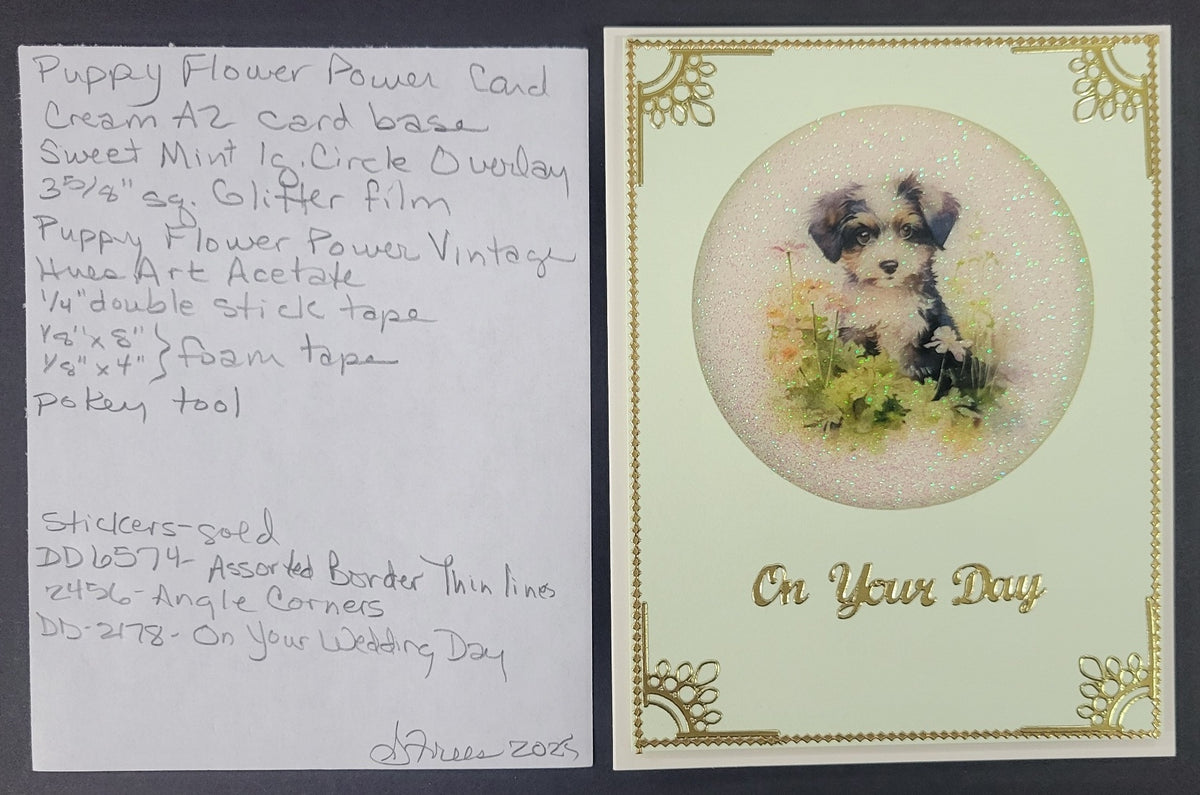 Puppy Flower Power Card
Cream A2 card base
Sweet Mint lg. Circle Overlay
3 5/8" sq. Glitter film
Puppy Flower Power Vintage
Hues Art Acetate
1/4" double stick tape
1/8" x 8"
1/8" x 4" } foam tape
pokey tool
Stickers-gold
DD6574- Assorted Border Thin lines
2456- Angle Corners
DD-2178- On Your Wedding Day
2025
On Your Day